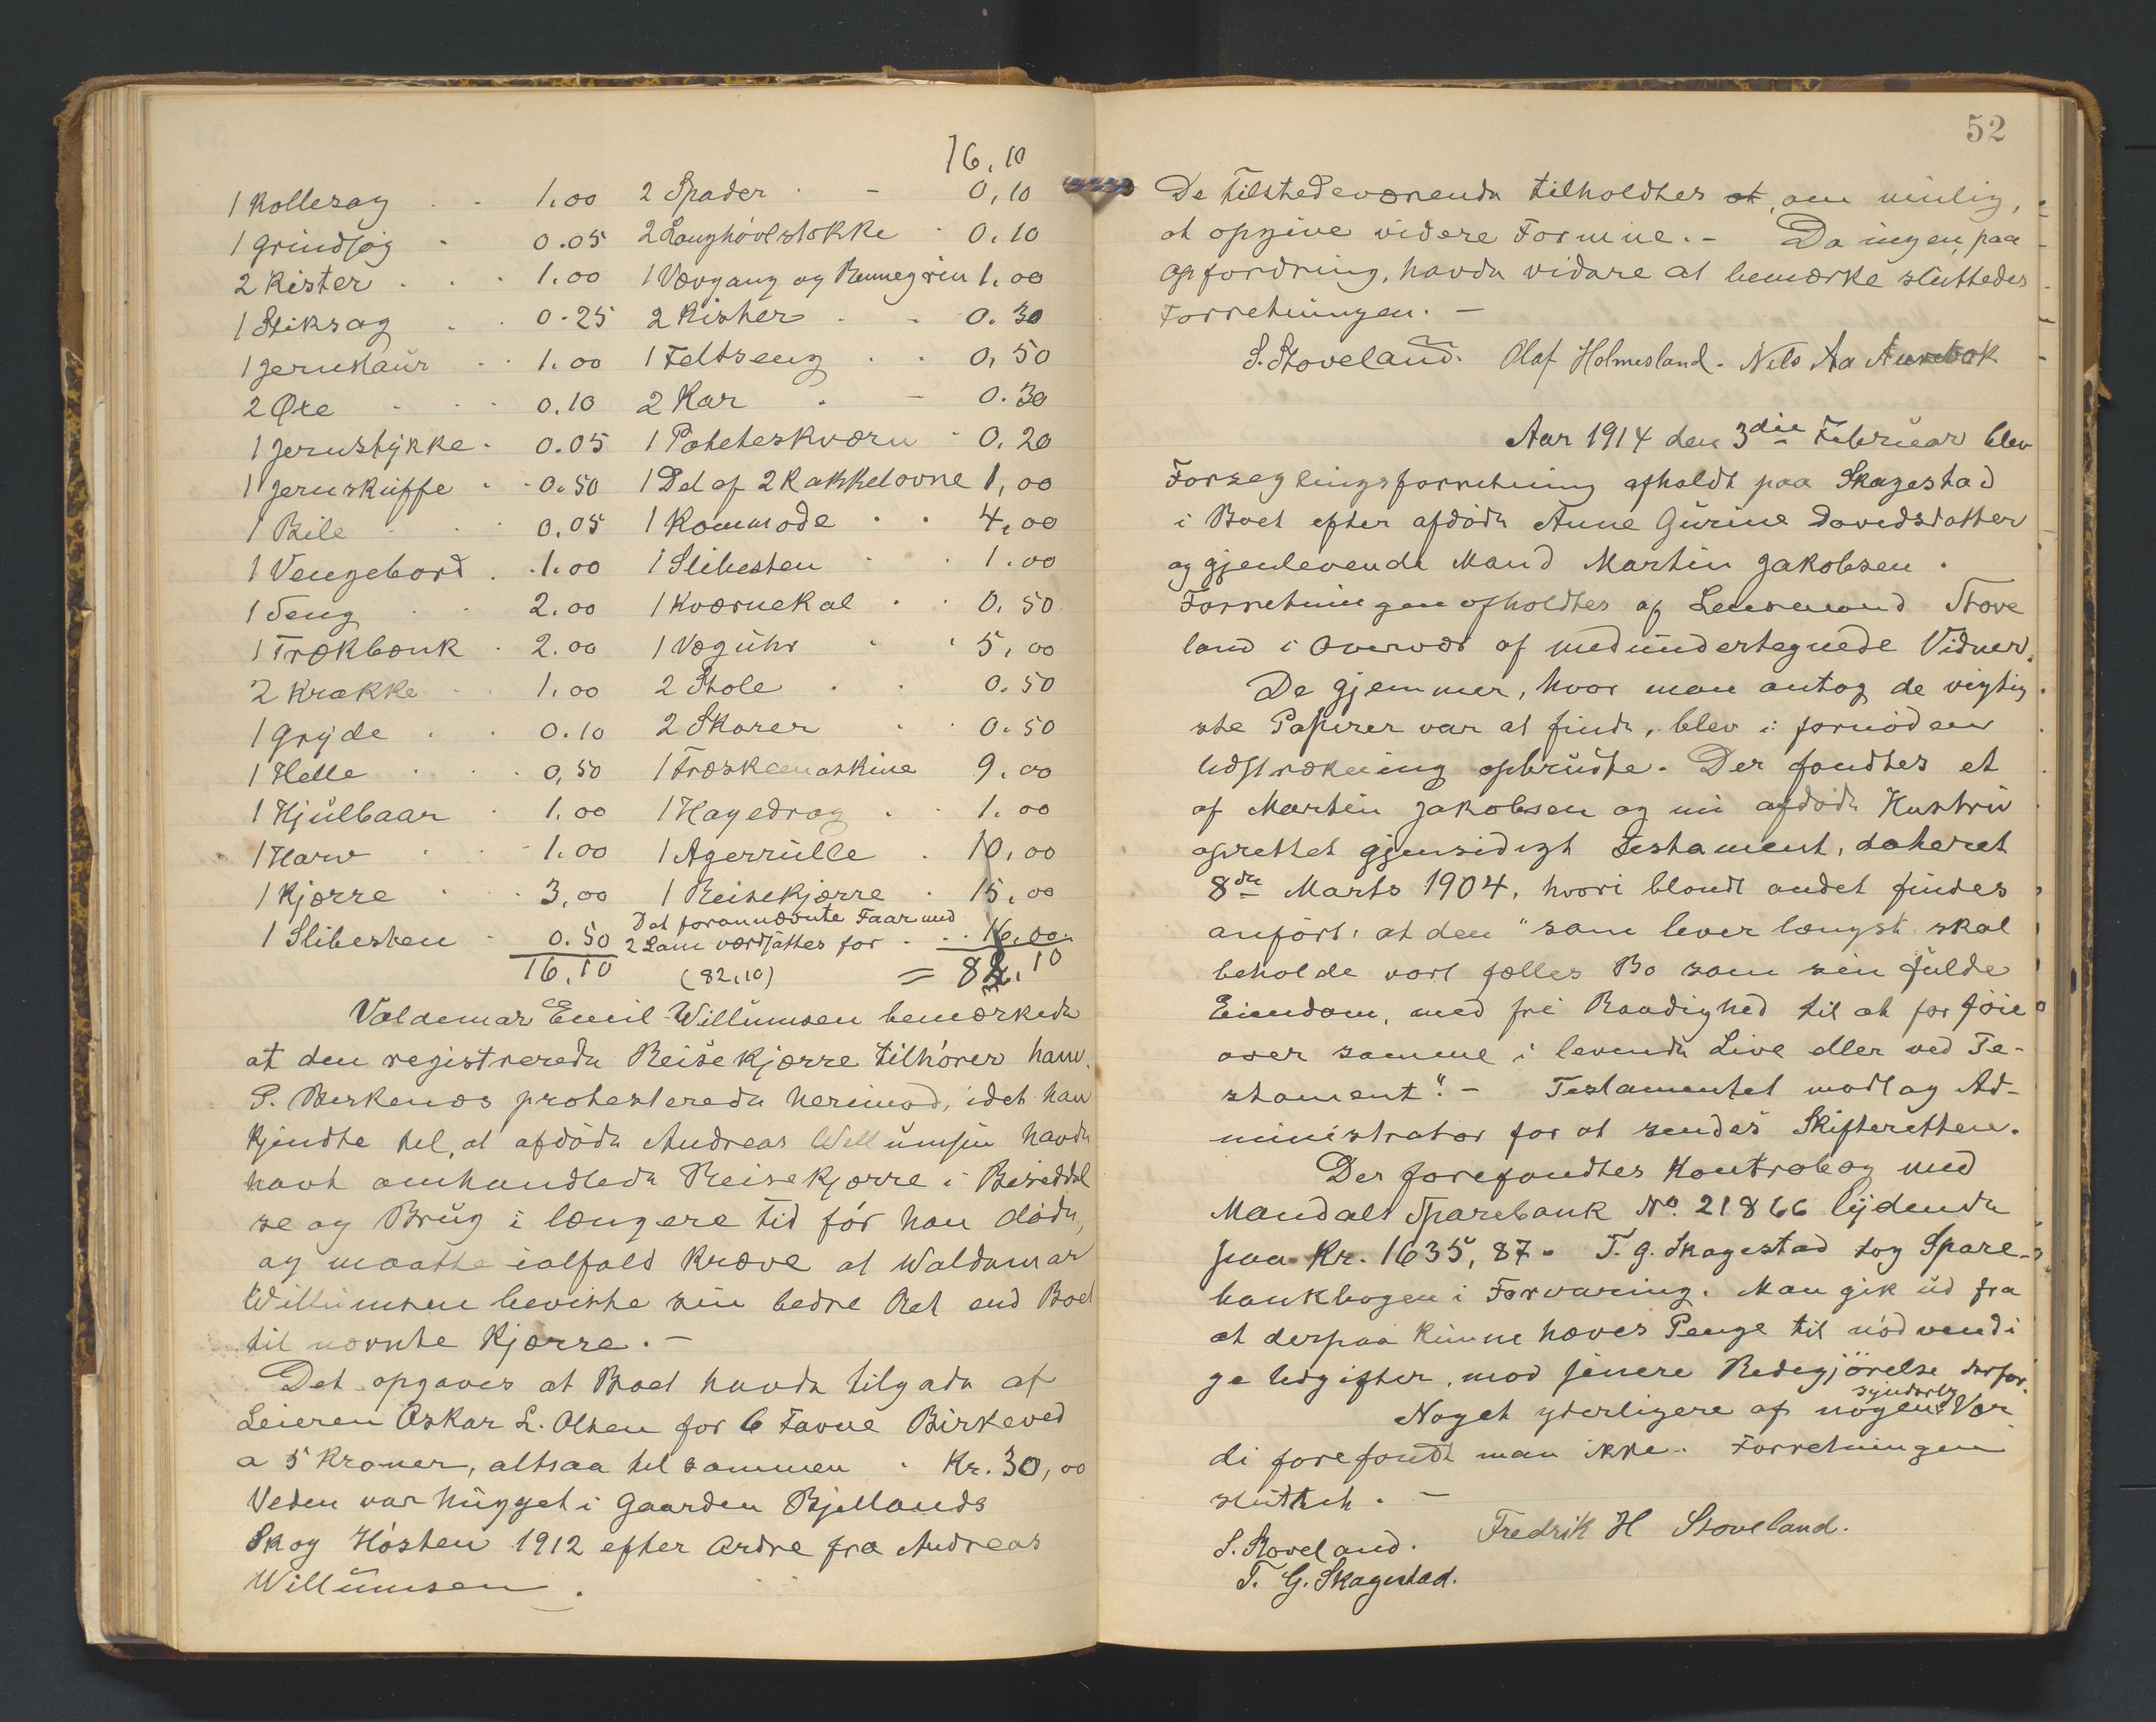 16.10
1 Kollesag . . 1.00 2 Spader . - 0,10
1 Grindsag . 0.05 2 Langhövlstokke . 0.10
2 Kister . . . 1.00 1 Vævgang og Rennegrin 1.00
1 Stiksag . . 0.25 2 Kister . . 0.30
1 Jernstaur . . 1.00 1 Feltseng . . 0,50
2 Øxe . . . 0.10 2 Kar . - 0.30
1 Jernstykke . 0.05 1 Poteteskværn . 0.20
1 Jernskuffe . . 0.50 1 Del af 2 Kakkelovne 1,00
1 Bile . . . 0.05 1 Kommode . . 4.00
1 Vengebord . . 1.00 1 Slibesten . . 1.00
1 Seng . . 2.00 1 Kværnekal . . 0.50
1 Trækbænk . 2.00 1 Væguhr . . 5,00
2 Krakke . . 1.00 2 Stole . . 0.50
1 Gryde . . 0.10 2 Skorer . . 0.50
1 Helle . . . 0,50 1 Træskemaskine 9.00
1 Hjulbaar . 1.00 1 Hagedrag . . 1.00
1 Harv . . 1.00 1 Agerrulle . 10,00
1 Kjærre . . 3,00 1 Reisekjærre . 15,00
Det forannævnte Faar med
1 Slibesten . 0.50 2 Lam værdsattes for . . . 16.00.
16.10 (82.10) = 82.10
Valdemar Emil Willumsen bemærkede
at den registrerede Reisekjærre tilhører ham.
P. Birkenes protesterede herimod, idet han
kjendte til, at afdøde Andreas Willumsen havde
havt omhandlede Reisekjærre i Besiddel
se og Brug i længere tid før han døde,
og maatte ialfald kræve at Waldemar
Willumsen beviste sin bedre Ret end Boet
til nævnte Kjærre. -
Det opgaves at Boet havde tilgode af
Leieren Oskar L. Olsen for 6 Favne Birkeved
a 5 Kroner, altsaa tilsammen . Kr. 30,00
Veden var hugget i Gaarden Bjellands
Skog Høsten 1912 efter Ordre fra Andreas
Willumsen .
52
De Tilstedeværende tilholdtes at, om mulig,
at opgive videre Formue. - Da ingen, paa
Opfordring, havde vidare at bemærke sluttedes
Forretningen. -
S. Stoveland. Olaf Holmesland. Nils Aa Aurebæk
Aar 1914 den 3die Februar blev
Forseglingsforretning afholdt paa Skagestad
i Boet efter afdöde Anne Gurine Davidsdatter
og gjenlevende Mand Martin Jakobsen .
Forretningen afholdtes af Lensmand Stove
land i Overvær af medundertegnede Vidner.
De gjemmer, hvor man antog de vigtig
ste Papirer var at finde, blev i fornöden
Udstrækning opbrudte. Der fandtes et
af Martin Jakobsen og nu afdöde Hustru
oprettet gjensidigt Testament, dateret
8de Marts 1904, hvori blandt andet findes
anfört: at den "som lever længst skal
beholde vort fælles Bo som sin fulde
Eiendom, med fri Raadighed til at forföie
over samme i levende Live eller ved Te-
stament". - Testamentet modtog Ad-
ministrator for at sendes Skifteretten.
Der forefandtes Kontrabog med
Mandals Sparebank No. 21866 lydende
paa Kr. 1635,87. T. G. Skagestad tog Spare-
bankbogen i Forvaring. Man gik ud fra
at derpaa kunne hæves Penge til nödvendi
ge Udgifter, mod senere Redegjörelse derfor.
Noget yderligere af nogen synderlig Vær
di forefandt man ikke. Forretningen
sluttet. -
S. Stoveland. Fredrik H Stoveland.
T. G. Skagestad.